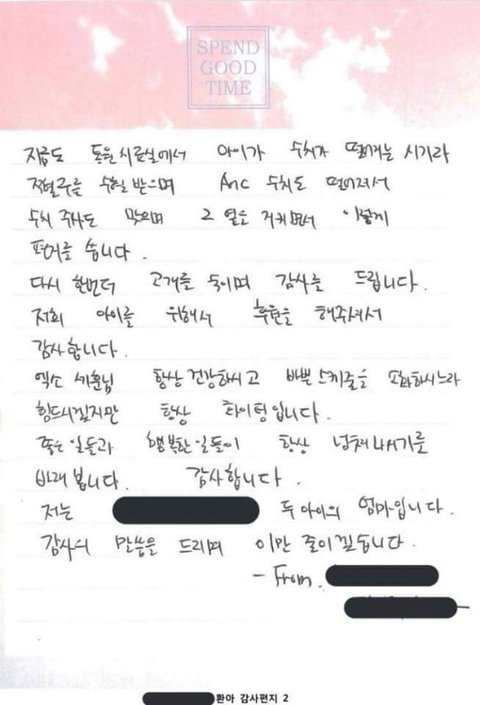 SPEND
GOOD
TIME
지금도 통원치료실에서 아이가 수치가 떨어지는 시기라
적혈구를 수혈 받으며 Anc 수치도 떨어져서
수치 주사도 맞으며 그 옆을 지키면서 이렇게
편지를 씁니다.
다시 한번더 고개를 숙이며 감사를 드립니다.
저희 아이를 위해서 후원을 해주셔서
감사합니다.
엑소 세훈님 항상 건강하시고 바쁜 스케줄을 소화하시느라
힘드시겠지만 항상 화이팅입니다.
좋은 일들과 행복한 일들이 항상 넘쳐나시기를
바래 봅니다. 감사합니다.
저는 두 아이의 엄마입니다.
감사의 말씀을 드리며 이만 줄이겠습니다.
- From.
환아 감사편지 2